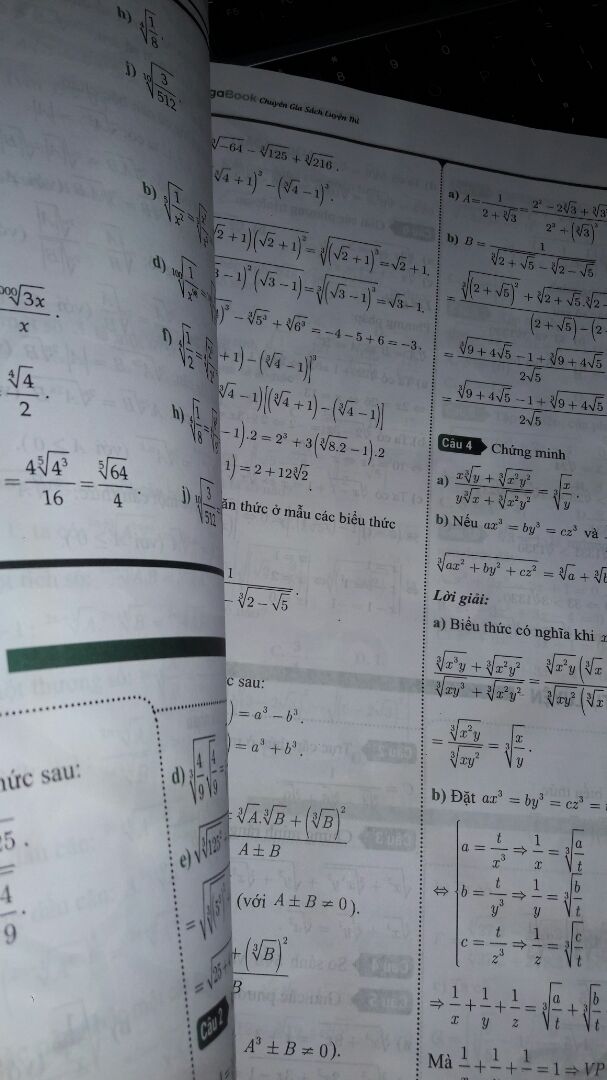 h) ⁴√(1/8).
j) ¹⁰√(3/512).
b) ⁵√(1/x²) =
d) ¹⁰⁰√(1/x⁸) =
√(3x) / x .
f) ⁴√(1/2) =
⁴√4 / 2 .
h) √(1/8) =
= 4⁵√(4³) / 16 = ⁵√64 / 4
j) ¹⁰√(3/512) =
hức sau:
25 .
4/9 .
d) ³√(4/9 √(4/9)) =
e) √(³√(125²))
= √(³√(5³)²)
= √25
Câu 2
gaBook Chuyên Gia Sách Luyện Thi
³√−64 − ³√125 + ³√216 .
³√4 + 1)³ − (³√4 − 1)³ .
√2 + 1)(√2 + 1)² = ³√((√2 + 1)³) = √2 + 1.
3 − 1)²(√3 − 1) = ³√((√3 − 1)³) = √3 − 1.
)³ − ³√(5³) + ³√(6³) = −4 − 5 + 6 = −3.
+ 1) − (³√4 − 1)]³
³√4 − 1)[(³√4 + 1) − (³√4 − 1)]
− 1).2 = 2³ + 3(³√(8.2) − 1).2
1) = 2 + 12³√2
ăn thức ở mẫu các biểu thức
1 / − ³√(2 − √5) .
c sau:
) = a³ − b³.
) = a³ + b³.
= ³√A.³√B + (³√B)² / A ± B
(với A ± B ≠ 0).
+ (³√B)² / B
A³ ± B ≠ 0).
a) A = 1 / (2 + ³√3) = 2² − 2³√3 + ³√3 / 2³ + (³√3)³
b) B = 1 / (³√(2 + √5) − ³√(2 − √5))
= ³√((2 + √5)²) + ³√(2 + √5).³√(2 − / (2 + √5) − (2 −
= ³√(9 + 4√5) − 1 + ³√(9 + 4√5 / 2√5
= ³√(9 + 4√5) − 1 + ³√(9 + 4√5 / 2√5
Câu 4 Chứng minh
a) (x³√y + ³√(x²y²)) / (y³√x + ³√(x²y²)) = ³√(x/y) .
b) Nếu ax³ = by³ = cz³ và
³√(ax² + by² + cz²) = ³√a + ³√b
Lời giải:
a) Biểu thức có nghĩa khi x
(³√(x³y) + ³√(x²y²)) / (³√(xy³) + ³√(x²y²)) = ³√(x²y) (³√x / ³√(xy²) (³√x
= ³√(x²y) / ³√(xy²) = ³√(x/y) .
b) Đặt ax³ = by³ = cz³ =
a = t/x³ ⇒ 1/x = ³√(a/t)
⇔ b = t/y³ ⇒ 1/y = ³√(b/t)
c = t/z³ ⇒ 1/z = ³√(c/t)
⇒ 1/x + 1/y + 1/z = ³√(a/t) + ³√(b/t)
Mà 1/x + 1/y + 1/z = 1 ⇒ VP